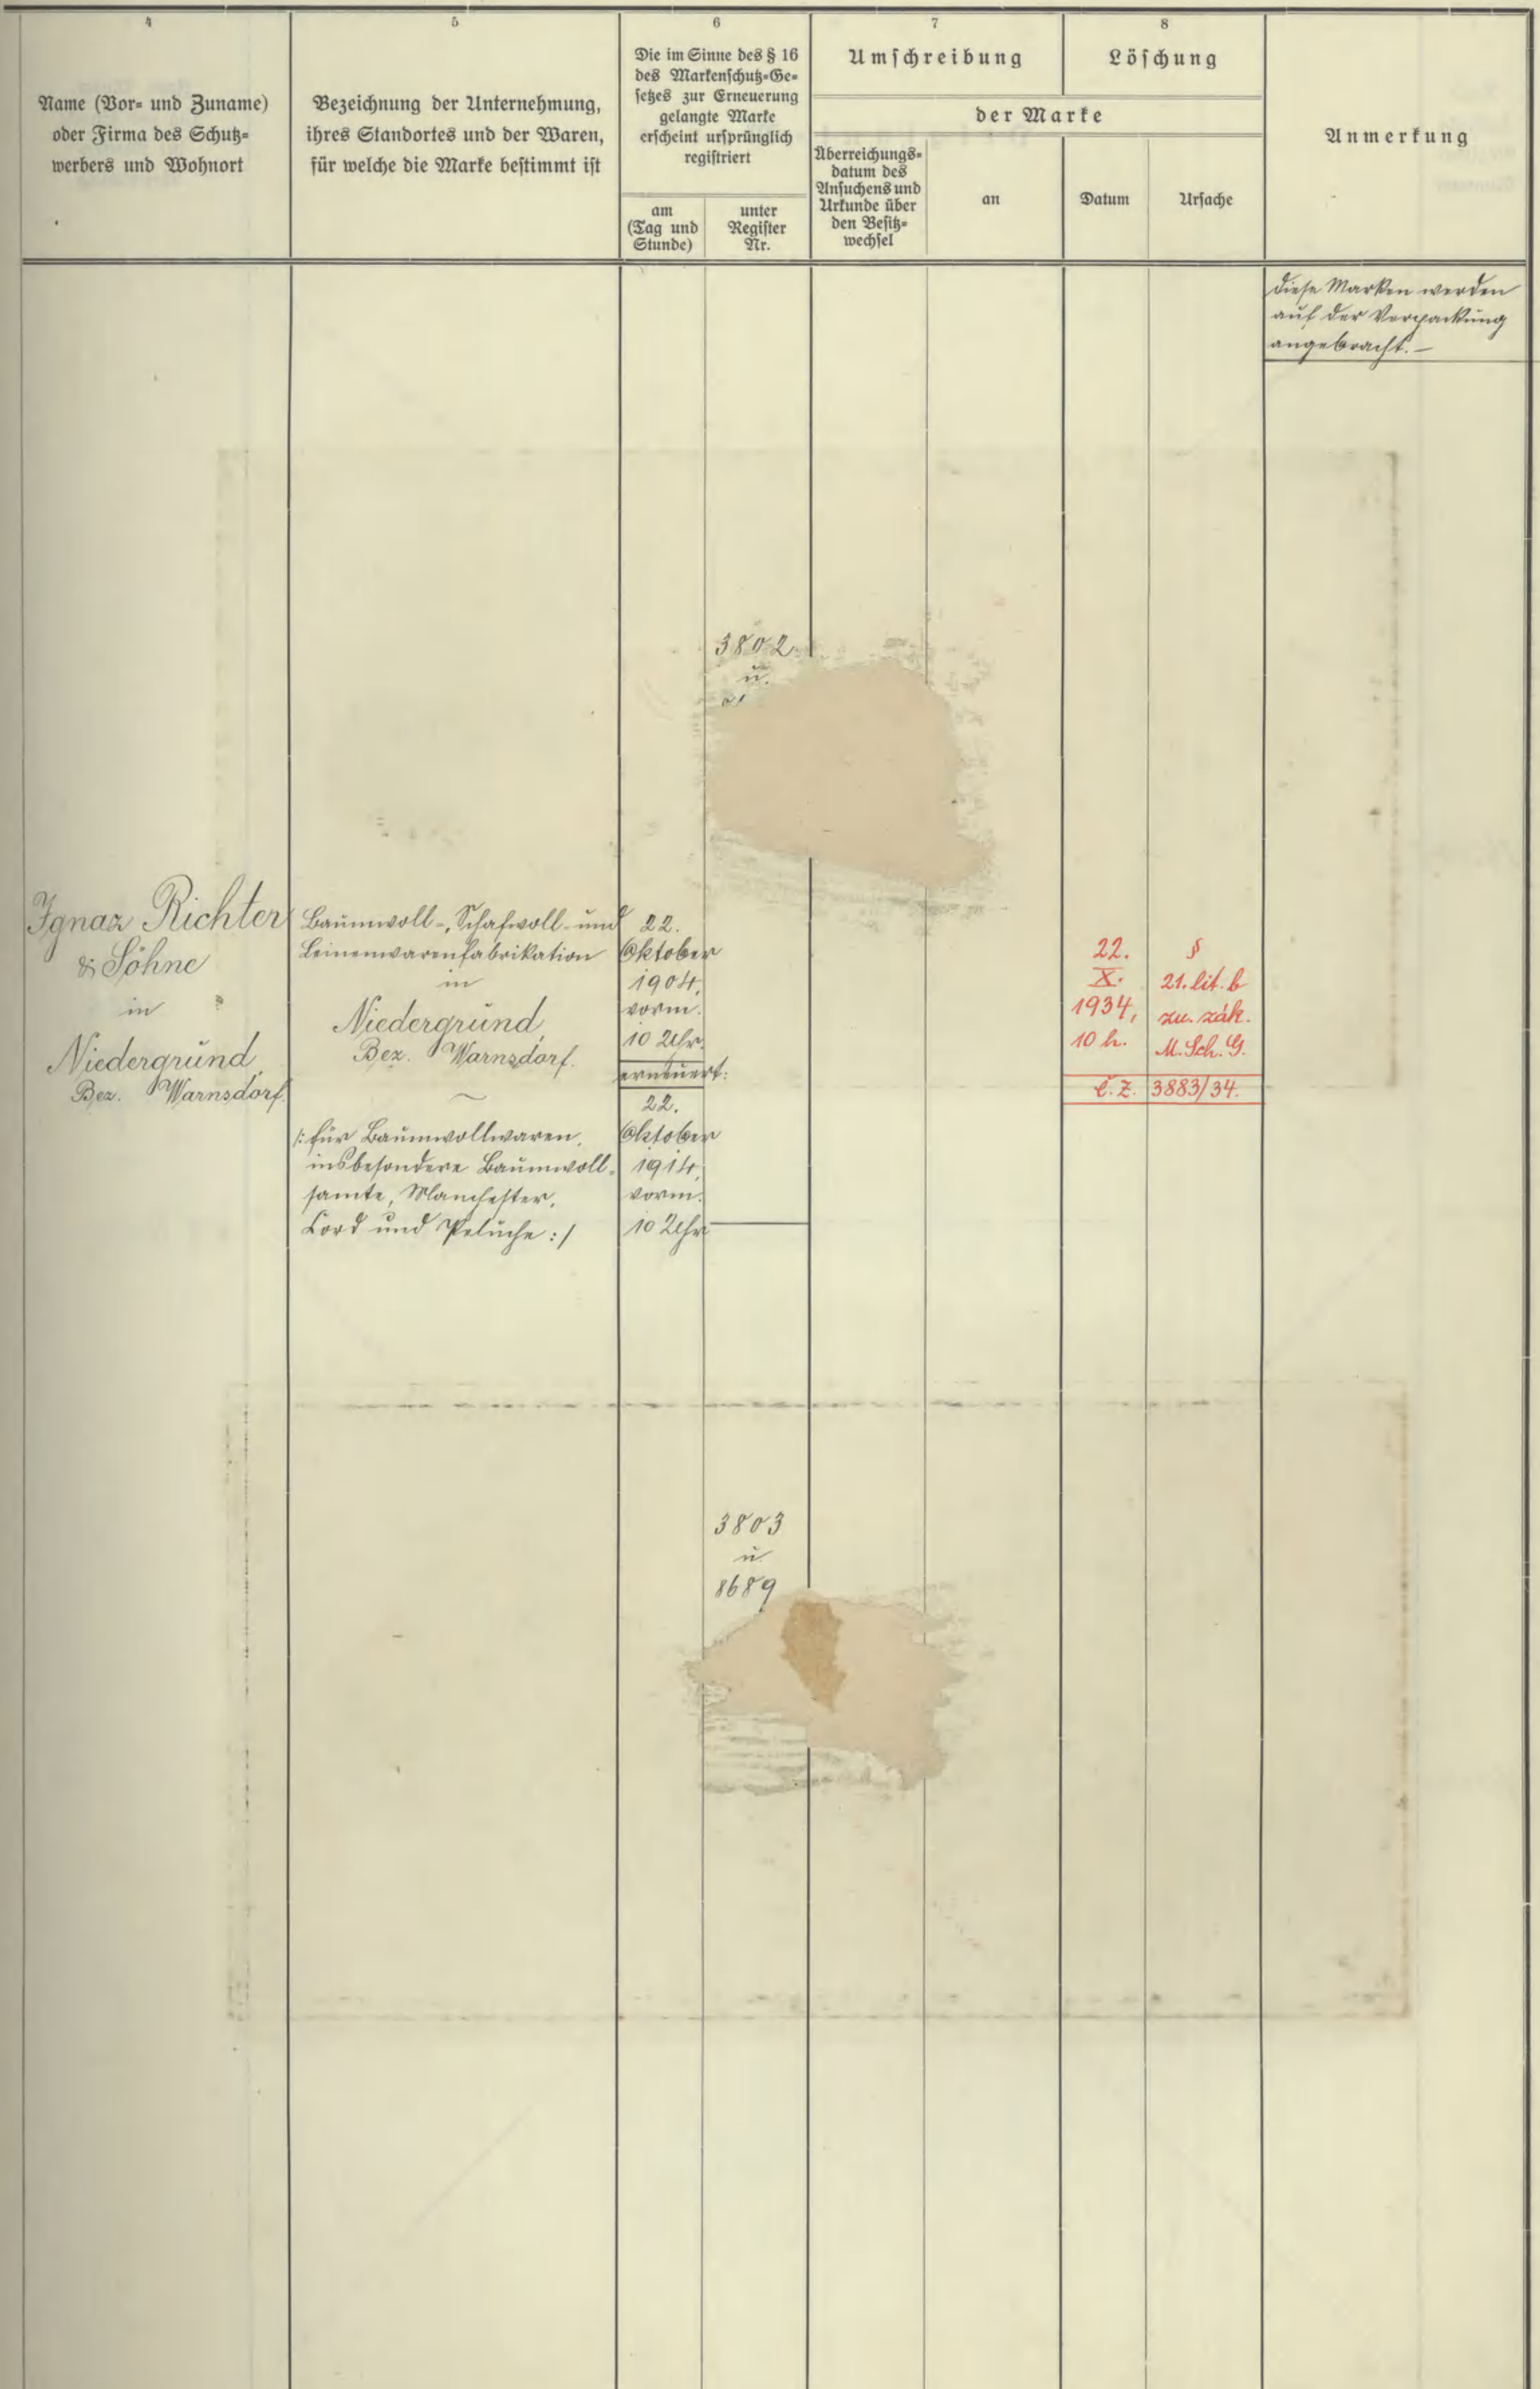 4
Name (Vor- und Zuname)
oder Firma des Schutz-
werbers und Wohnort
5
Bezeichnung der Unternehmung,
ihres Standortes und der Waren,
für welche die Marke bestimmt ist
6
Die im Sinne des § 16
des Markenschutz-Ge-
setzes zur Erneuerung
gelangte Marke
erscheint ursprünglich
registriert
am
(Tag und
Stunde)
unter
Register
Nr.
7
Umschreibung
8
Löschung
der Marke
Überreichungs-
datum des
Ansuchens und
Urkunde über
den Besitz-
wechsel
an
Datum
Ursache
Anmerkung
Diese Marken werden
auf der Verpackung
angebracht. –
3802
u.
Ignaz Richter
& Söhne
in
Niedergrund,
Bez. Warnsdorf.
Baumwoll-, Schafwoll- und
Leinenwarenfabrikation
in
Niedergrund,
Bez. Warnsdorf.
/: für Baumwollwaren,
insbesondere Baumwoll-
samte, Manchester,
Cord und Pelüche :/
22.
Oktober
1904,
vorm.
10 Uhr.
erneuert:
22.
Oktober
1914,
vorm.
10 Uhr
22.
X.
1934,
10 h.
§
21. lit. b
zn. zák.
M. Sch. G.
č. z. 3883/34.
3803
u.
8689